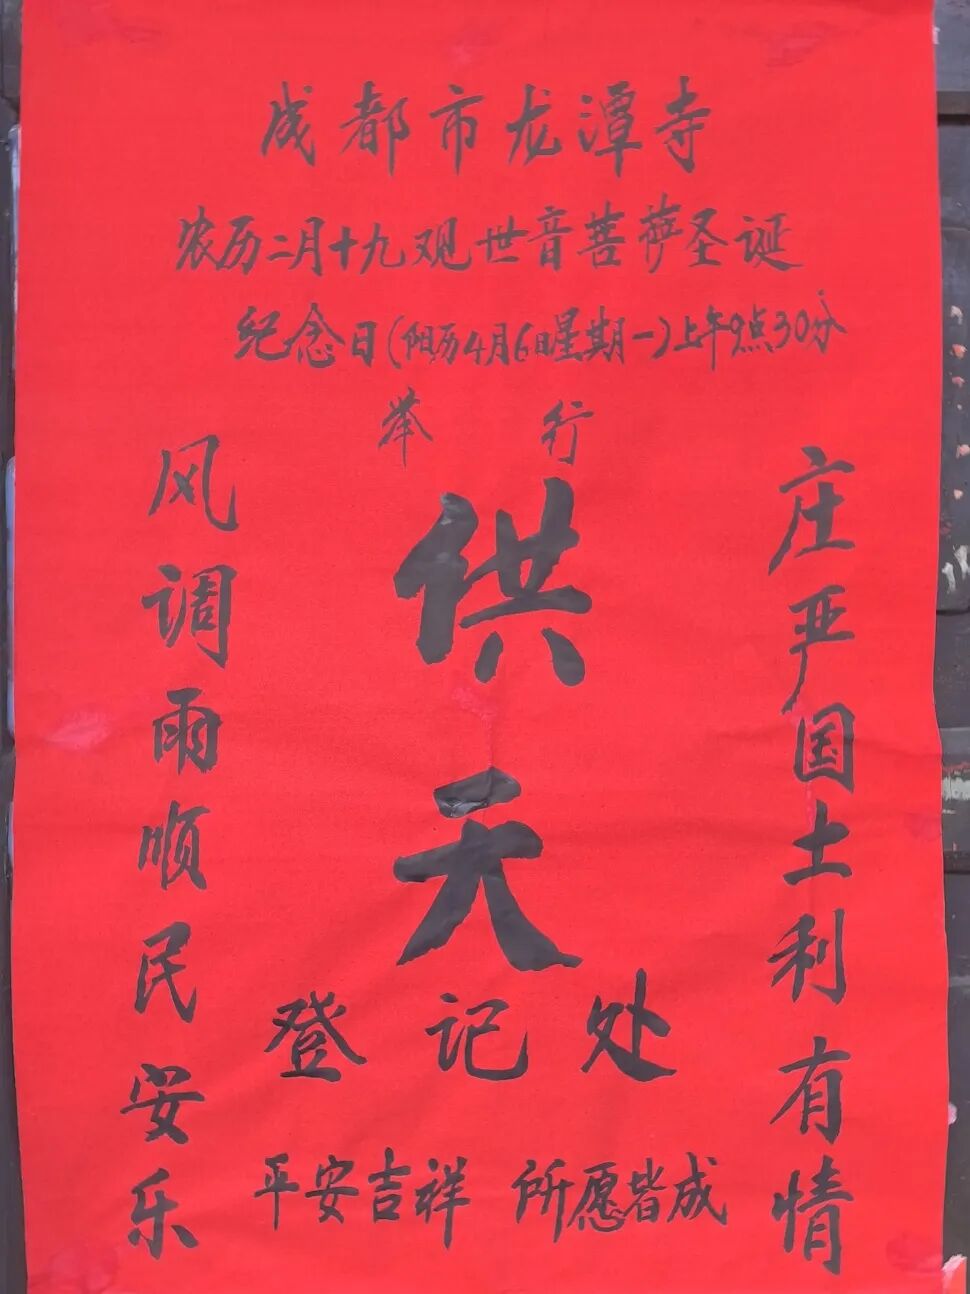 成都市龙潭寺
农历二月十九观世音菩萨圣诞
纪念日(阳历4月6日星期一)上午9点30分
举行
供天
登记处
平安吉祥 所愿皆成
庄严国土利有情
风调雨顺民安乐